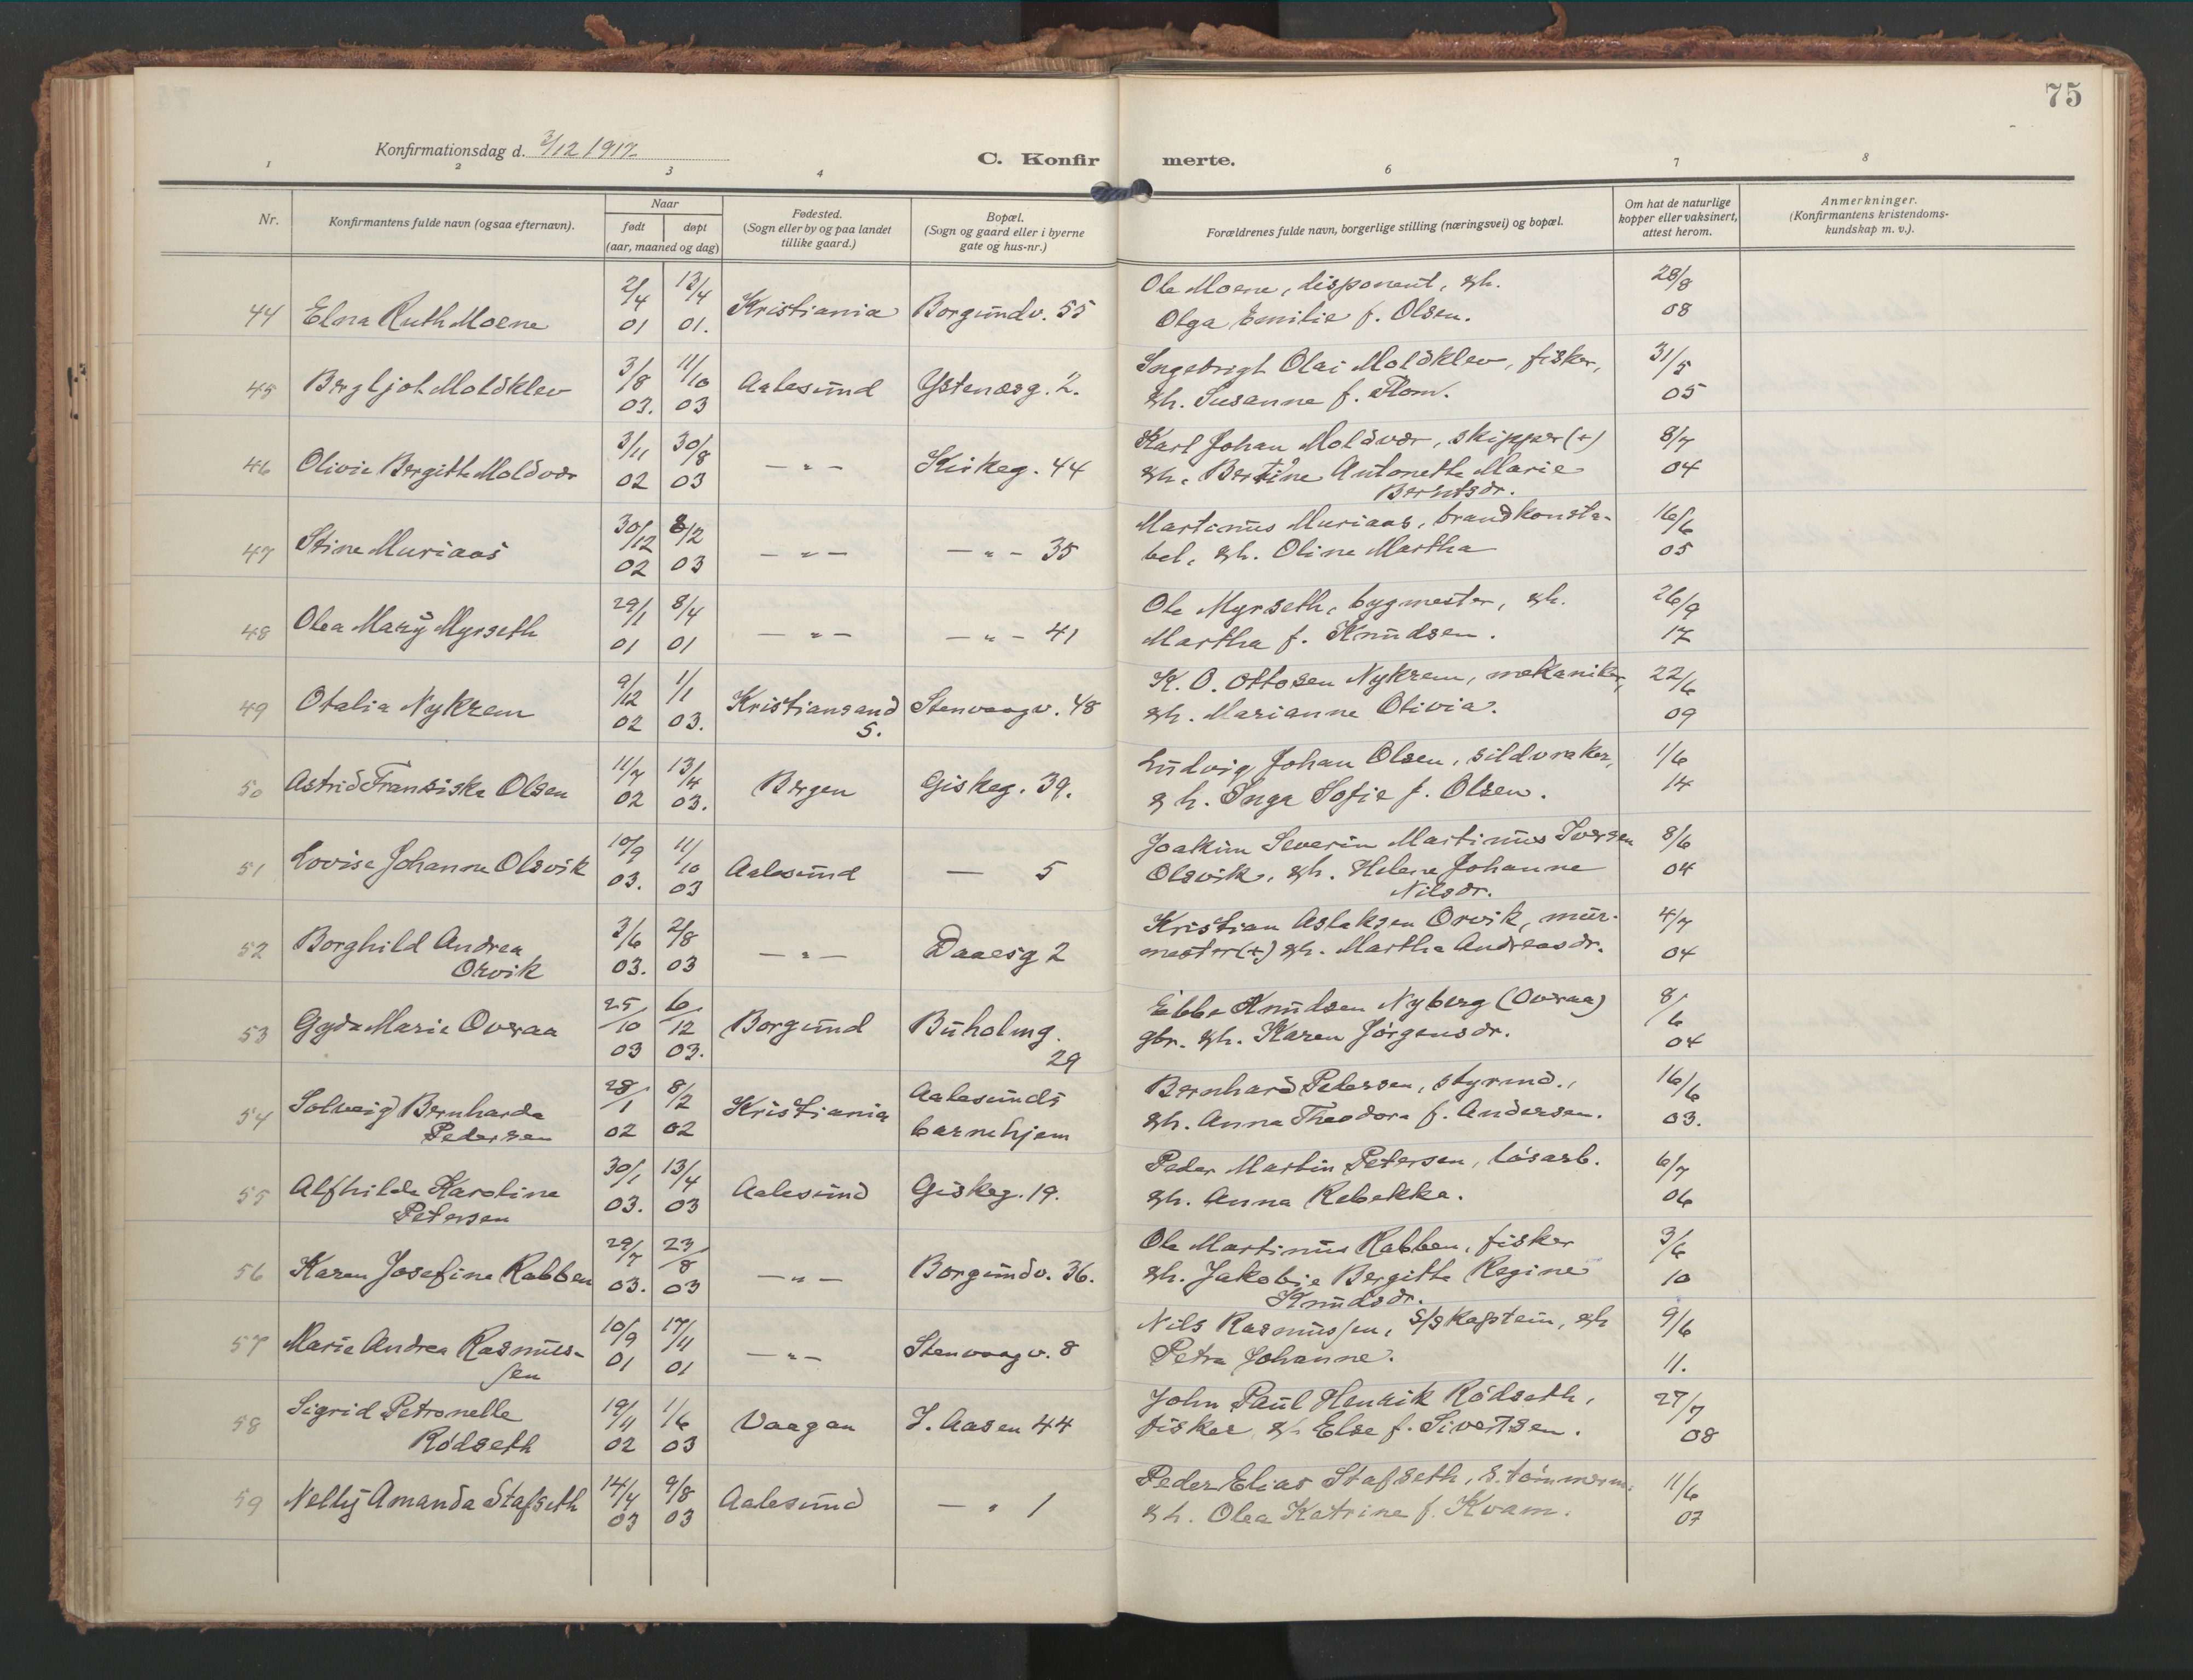 75
Konfirmationsdag d. 3/12 1917.
C. Konfir merte.
1 2 3 4 6 7 8
Nr.
Konfirmantens fulde navn (ogsaa efternavn).
Naar
født døpt
(aar, maaned og dag)
Fødested.
(Sogn eller by og paa landet
tillike gaard.)
Bopæl.
(Sogn og gaard eller i byerne
gate og hus-nr.)
Forældrenes fulde navn, borgerlige stilling (næringsvei) og bopæl.
Om hat de naturlige
kopper eller vaksinert,
attest herom.
Anmerkninger.
(Konfirmantens kristendoms-
kundskap m. v.).
2/4 13/4 Ole Moene, disponent, &h. 28/8
44 Elna Ruth Moene 01 01. Kristiania Borgundv. 55 Olga Emilie f. Olsen. 08
3/8 11/10 Ingebrigt Olai Moldklev, fisker, 31/5
45 Bergljot Moldklev 03. 03 Aalesund Ystenesg. 2. &h. Susanne f. Flom. 05
3/11 30/8 Karl Johan Moldvær, skipper (+) 8/7
46 Olivie Bergitte Moldvær 02 03 — " — Kirkeg. 44 &h. Bertine Antonette Marie 04
Berntsdr.
30/12 8/2 Martinus Muriaas, brandkonsta- 16/6
47 Stine Muriaas 02 03 — " — — " — 35 bel, &h. Oline Martha 05
29/1 8/4 Ole Myrseth, bygmester, &h. 26/9
48 Olea Mary Myrseth 01 01 — " — — " — 41 Martha f. Knudsen. 17
9/12 1/1 K. O. Ottosen Nykrem, mekaniker, 22/6
49 Otalia Nykrem 02 03. Kristiansand S. Stenvaagv. 48 &h. Marianne Olivia. 09
11/7 13/4 Ludvig Johan Olsen, sildvraker, 1/6
50 Astrid Fransiska Olsen 02 03. Bergen Giskeg. 39. &h. Inga Sofie f. Olsen. 14
10/9 11/10 Joakim Severin Martinus Iversen 8/6
51 Lovise Johanne Olsvik 03. 03 Aalesund — 5 Olsvik, &h. Helene Johanne 04
Nilsdr.
3/6 2/8 Kristian Aslaksen Orvik, mur- 4/7
52 Borghild Andrea 03. 03 — " — Daaesg 2 mester (+) &h. Martha Andreasdr. 04
Orvik
25/10 6/12 Ebbe Knudsen Nyberg (Overaa) 8/6
53 Gyda Marie Overaa 03 03. Borgund Buholmg. 29 gbr. &h. Karen Jørgensdr. 04
28/1 8/2 Aalesunds Bernhard Pedersen, styrmd., 16/6
54 Solveig Bernharda 02 02 Kristiania barnehjem &h. Anna Theodora f. Andersen. 03.
Pedersen
30/1 13/4 Peder Martin Petersen, løsarb. 6/7
55 Alfhilde Karoline 03. 03 Aalesund Giskeg. 19. &h. Anna Rebekka. 06
Petersen
29/7 23/8 Ole Martinus Rabben, fisker 3/6
56 Karen Josefine Rabben 03. 03 — " — Borgundv. 36. &h. Jakobie Bergitte Regine 10
Knudsdr.
10/9 17/11 Nils Rasmussen, S/S kaptein, &h 9/6
57 Marie Andrea Rasmus- 01 01 — " — Stenvaagv. 8 Petra Johanne. 11.
sen
19/11 1/6 John Paul Henrik Rødseth, 27/7
58 Sigrid Petronelle 02 03 Vaagan I. Aasen 44 fisker &h Else f. Sivertsen. 08
Rødseth
14/4 9/8 Peder Elias Stafseth, s. tømmerm. 11/6
59 Nelly Amanda Stafseth 03 03 Aalesund — " 1 &h. Olea Katrine f. Kvam. 07